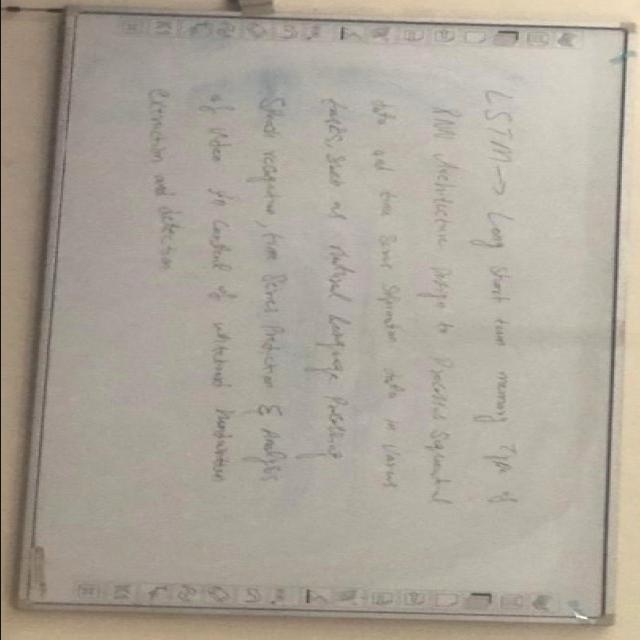 LSTM → Long short term memory Type of
RNN Architecture Design to Process Sequential
data and time Series data in various
tasks, such as Natural Language Processing
Speech recognition, time Series Prediction & Analysis
of Video in Context of
and detection